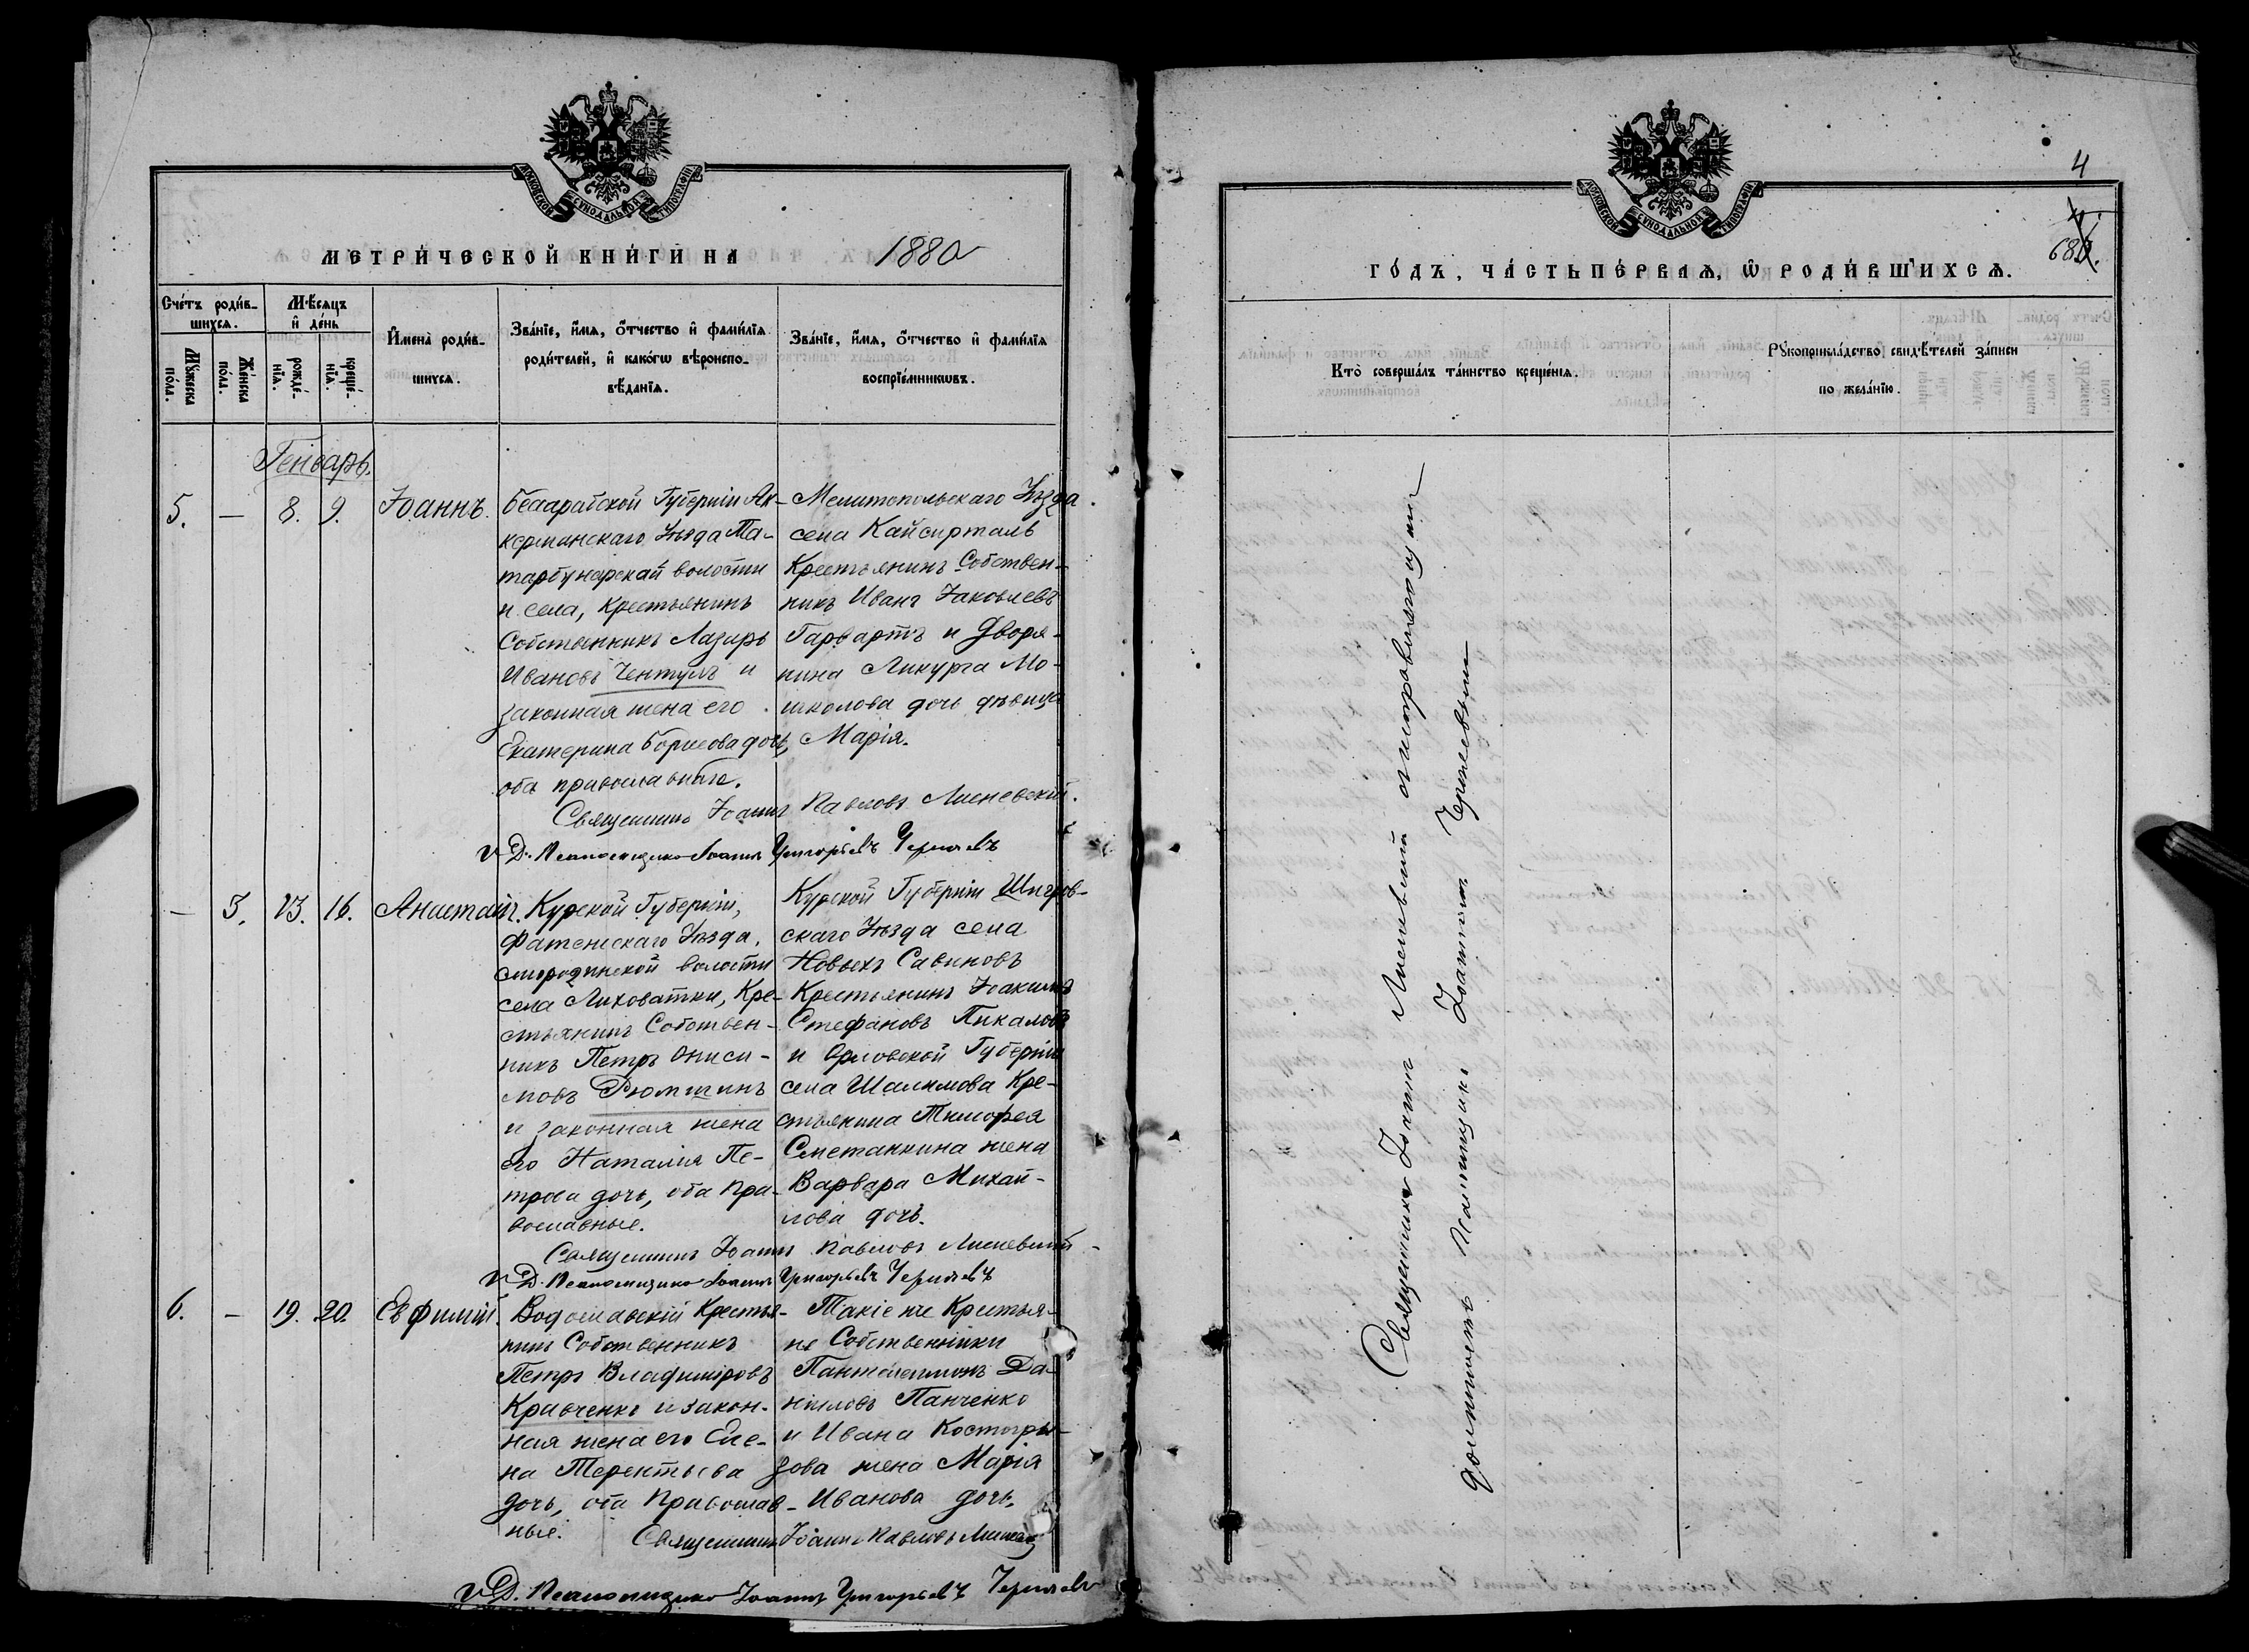 МОСКОВСКОЙ СѴНОДАЛЬНОЙ ТИПОГРАФІИ
МЕТРИ́ЧЕСКОЙ КНИ́ГИ НА 1880
Счéтъ роди́в-
шихсѧ.
Мѣ́сѧцъ
и҆ дéнь
Мꙋ́жеска
пóла.
Жéнска
пóла.
рождé-
нїѧ.
крещé-
нїѧ.
И҆менà роди́в-
шихсѧ.
Звáнїе, и҆́мѧ, ѻ҆́тчество и҆ фами́лїѧ
роди́телей, и҆ какóгѡ вѣроиспо-
вѣ́данїѧ.
Звáнїе, и҆́мѧ, ѻ҆́тчество и҆ фами́лїѧ
воспрїéмникѡвъ.
Генварь.
5. — 8. 9. Іоаннъ.
Бессарабской Губерніи Ак-
керманскаго Уѣзда Та-
тарбунарской волости
и села, Крестьянинъ
Собственникъ Лазарь
Ивановъ Чентулъ и
законная жена его
Екатерина Борисова дочь,
оба православные.
Мелитопольскаго Уѣзда
села Кайсирталь
Крестьянинъ Собствен-
никъ Иванъ Іаковлевъ
Гарвартъ и Дворя-
нина Ликурга Мо-
школова дочь дѣвица
Марія.
Священникъ Іоаннъ Павловъ Лисневскій.
И. Д. Псаломщика Іоаннъ Григорьевъ Чернявъ
— 3. 13. 16. Анастасія.
Курской Губерніи,
Фатежскаго Уѣзда,
Смородинской волости
села Лиховатки, Кре-
стьянинъ Собствен-
никъ Петръ Ониси-
мовъ Рюмшинъ
и законная жена
его Наталия Пе-
трова дочь, оба пра-
вославные.
Курской Губерніи Щигров-
скаго Уѣзда села
Новыхъ Савиновъ
Крестьянинъ Іоакимъ
Стефановъ Пикаловъ
и Орловской Губерніи
села Шалимова Кре-
стьянина Тимофея
Сметанкина жена
Варвара Михай-
лова дочь.
Священникъ Іоаннъ Павловъ Лисневскій
И. Д. Псаломщика Іоаннъ Григорьевъ Чернявъ
6. — 19. 20. Евфимій.
Водославскій Крестья-
нинъ Собственникъ
Петръ Владиміровъ
Кравченко и закон-
ная жена его Еле-
на Терентьева
дочь, оба Православ-
ные.
Такіе же Крестья-
не Собственники
Пантелеимонъ Да-
ниловъ Панченко
и Ивана Костогры-
зова жена Марія
Иванова дочь.
Священникъ Іоаннъ Павловъ
И. Д. Псаломщика Іоаннъ Григорьевъ Чернявъ
МОСКОВСКОЙ СѴНОДАЛЬНОЙ ТИПОГРАФІИ
4
ГО́ДЪ, ЧА́СТЬ ПЕ́РВАѦ, Ѡ҆ РОДИ́ВШИХСѦ.
Ктò совершáлъ тáинство крещéнїѧ.
Рꙋкоприклáдство свидѣ́телей зáписи
по желáнїю.
Священникъ Іоаннъ Лисневскій
Должность Псаломщика Іоаннъ